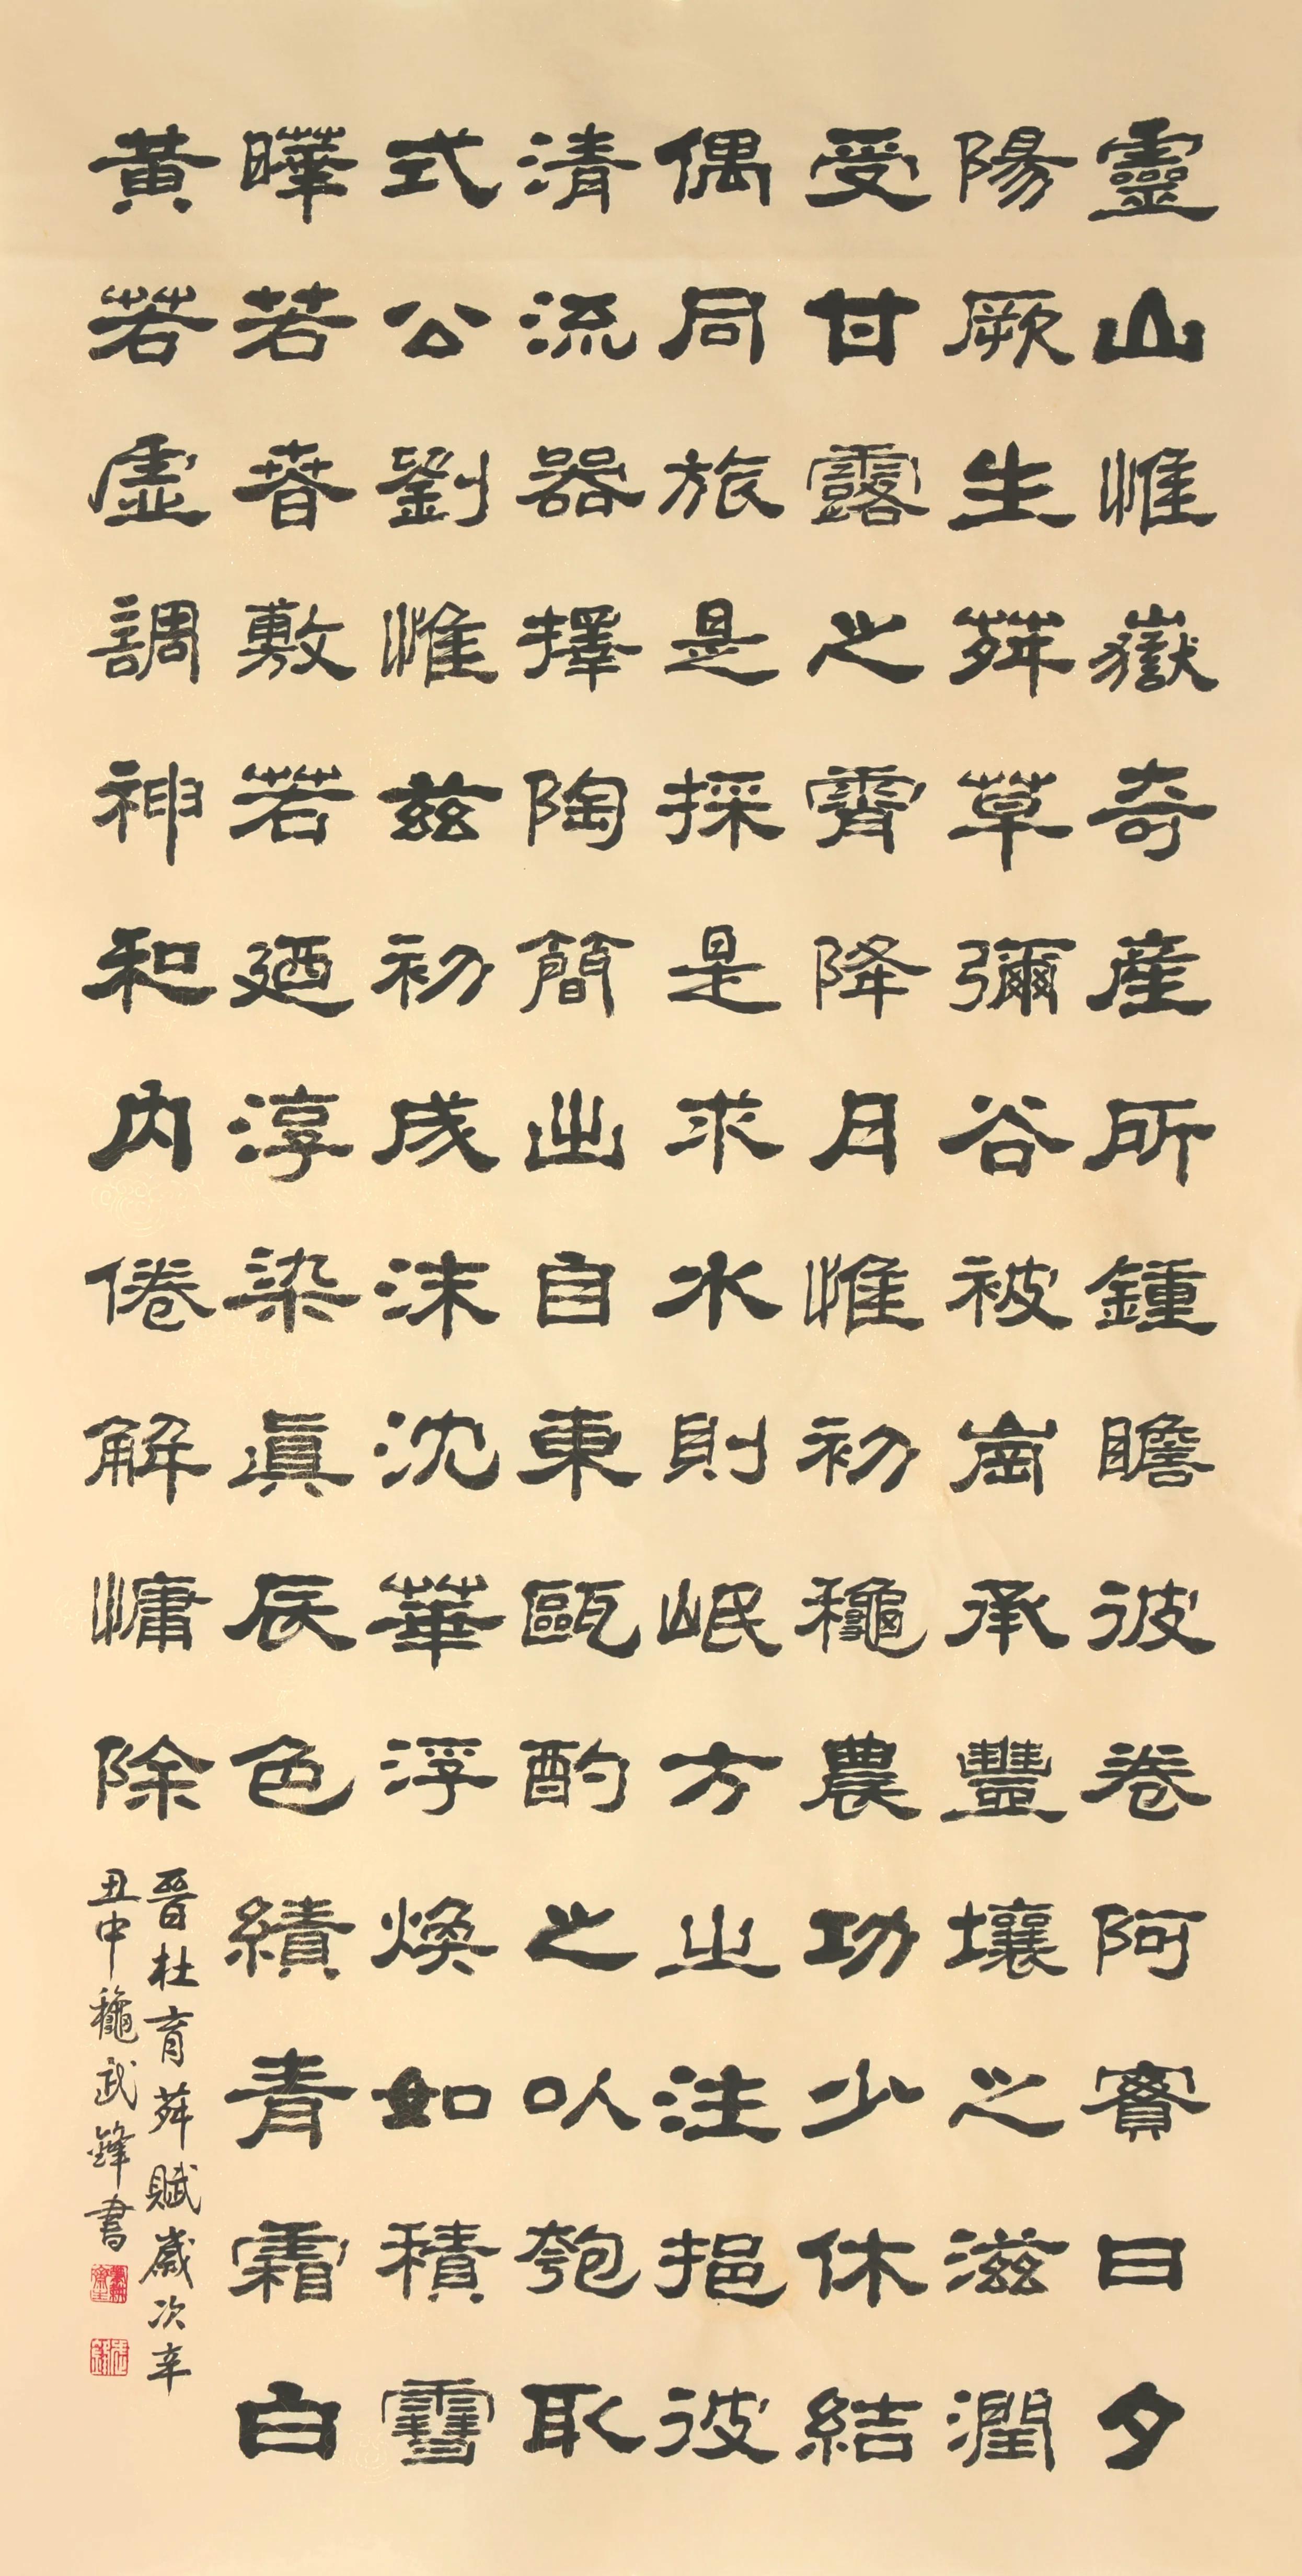 靈山惟嶽奇產所鍾瞻彼卷阿實曰夕
陽厥生荈草彌谷被崗承豐壤之滋潤
受甘露之霄降月惟初穐農功少休結
偶同旅是採是求水則岷方之注挹彼
清流器擇陶簡出自東甌酌之以匏取
式公劉惟茲初成沫沈華浮煥如積雪
曄若春敷若迺淳染真辰色績青霜白
黃若虛調神和內倦解慵除
晉杜育荈賦歲次辛
丑中穐武鋒書